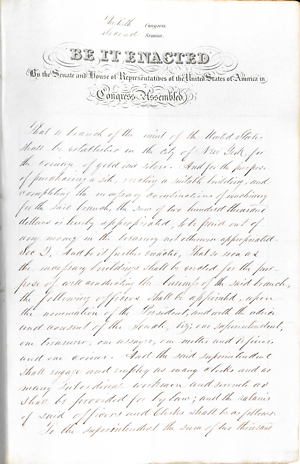 Congress
Second Session
BE IT ENACTED
By the Senate and House of Representatives of the United States of America in
Congress Assembled
That a branch of the mint of the United States
shall be established in the city of New York for
the coinage of gold and silver. And for the purpose
of purchasing a site, erecting a suitable building, and
completing the necessary combinations of machinery
for the said branch, the sum of two hundred thousand
dollars is hereby appropriated, to be paid out of
any money in the treasury not otherwise appropriated.
Sec 2, And be it further enacted, That so soon as
the necessary buildings shall be erected for the pur-
pose of well conducting the business of the said branch,
the following officers shall be appointed, upon
the nomination of the President, and with the advice
and consent of the Senate, viz; one superintendent,
one treasurer, one assayer, one melter and refiner,
and one coiner. And the said superintendent
shall engage and employ as many clerks and as
many subordinate workmen and servants as
shall be provided for by law; and the salaries
of said officers and clerks shall be as follows:
To the superintendent the sum of two thousand